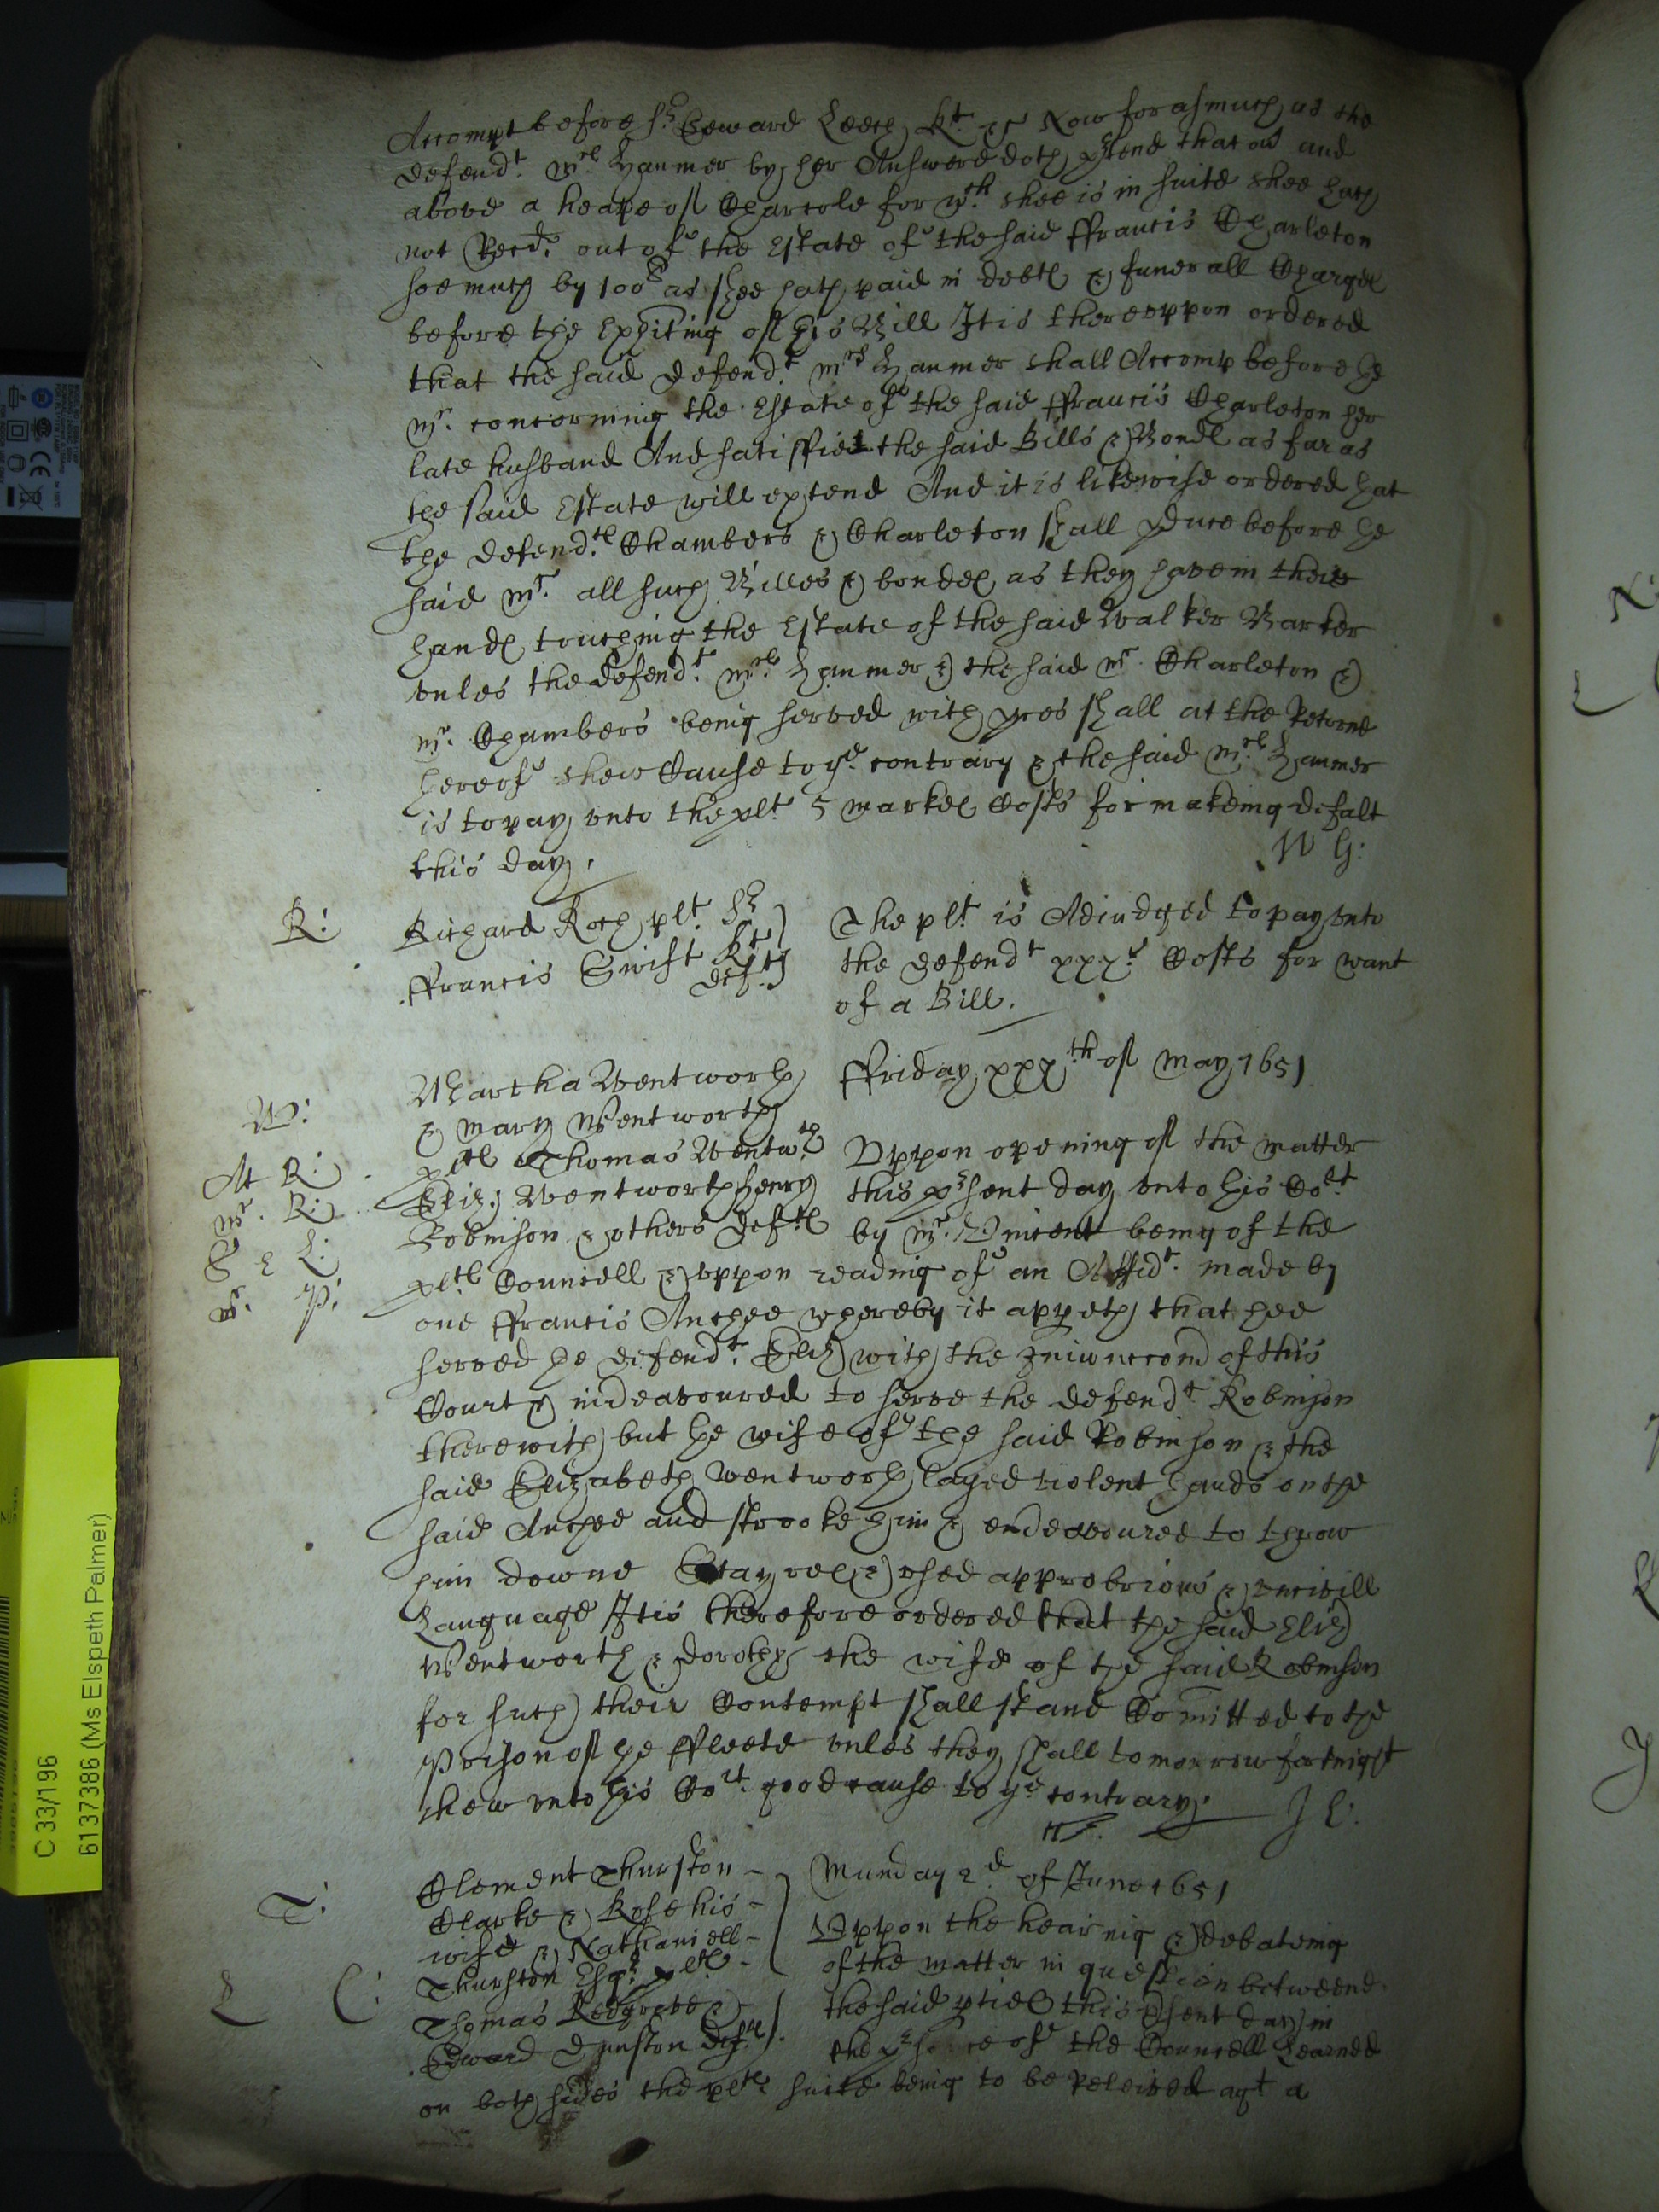 Accompt before Sr. Edward Leech Kt. &c Now forasmuch as the
defendt. Mrs. Hanmer by her Answere doth prtend that ov and
above a heape of Charcole for wch. shee is in suite shee hath
not Recd. out of the Estate of the said Ffrancis Charleton
soe much by 100l as shee hath paid in debts & funerall Charges
before the exhiting of his Bill It is thereuppon ordered
that the said defendt. Mrs Hanmer shall Accomp before the
Mr. concerning the Estate of the said Ffrancis Charleton her
late husband And satisfie the said Bills & Bonds as far as
the said Estate will extend And it is likewise ordered that
the defendts. Chambers & Charleton shall pduce before the
said Mr. all such Billes & bondes as they have in their
hands touching the Estate of the said Walter Barker
unles the defendt. Mrs. Hanmer & the said Mr. Charleton &
Mr. Chambers being served with pces shall at the Retorne
hereof shew Cause to ye. contrary & the said Mrs. Hanmer
is to pay unto the plt 5 markes Costs for makeing defalt
this day.
W G:
R:
Richard Roch plt. Sr
Ffrancis Swift Kt
deft.
The plt. is Adiudged to pay unto
the defendt xxxs. Costs for want
of a Bill.
W:
At R:
Mr. R:
S E L:
Mr. P:
Martha Wentworth
& Mary Wentworth
plts Thomas Wentwth.
Eliz: Wentworth Henry
Robinson & others defts
Ffriday xxxth of May 1651
Uppon opening of the matter
this prsent day unto this Cort
by Mr. Vincent being of the
plts. Councell & uppon reading of an Affidt. made by
one Ffrancis Anchee whereby it appeth that hee
served the defendt. Eliz with the Iniunccon of this
Court & indeavoured to serve the defendt Robinson
therewith but the wife of the said Robinson & the
said Elizabeth Wentworth layed violent hands on the
said Anchee and strooke him & endeavoured to throw
him downe Stayres & used opprobrious & uncivill
Language It is therefore ordered that the said Eliz
Wentworth & Dorothy the wife of the said Robinson
for such their Contempt shall stand Comitted to the
Prison of the Ffleete unles they shall tomorrow fortnight
shew unto this Cort. good cause to ye contrary.
J L:
T:
L C:
Clement Thurston
Clarke & Rose his
wife & Nathaniell
Thurston Esqr. plts.
Thomas Redgrave &
Edward Dunston defts.
Munday 2d. of June 1651
Uppon the hearing & debateing
of the matter in question betweene
the said pties this psent day in
the prsence of the Councell Learned
on both sides the plts. suite being to be Releived agt a
C 33/196
6137386 (Ms Elspeth Palmer)